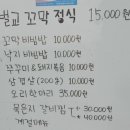 벌교 꼬막 정식 15,000원
꼬막비빔밥 10,000원
낙지비빔밥 10,000원
쭈꾸미&돼지볶음 10,000원
삼겹살(200g) 10,000원
오리한마리 35,000원
묵은지 갈비찜 中 30,000원
大 40,000원
계절메뉴